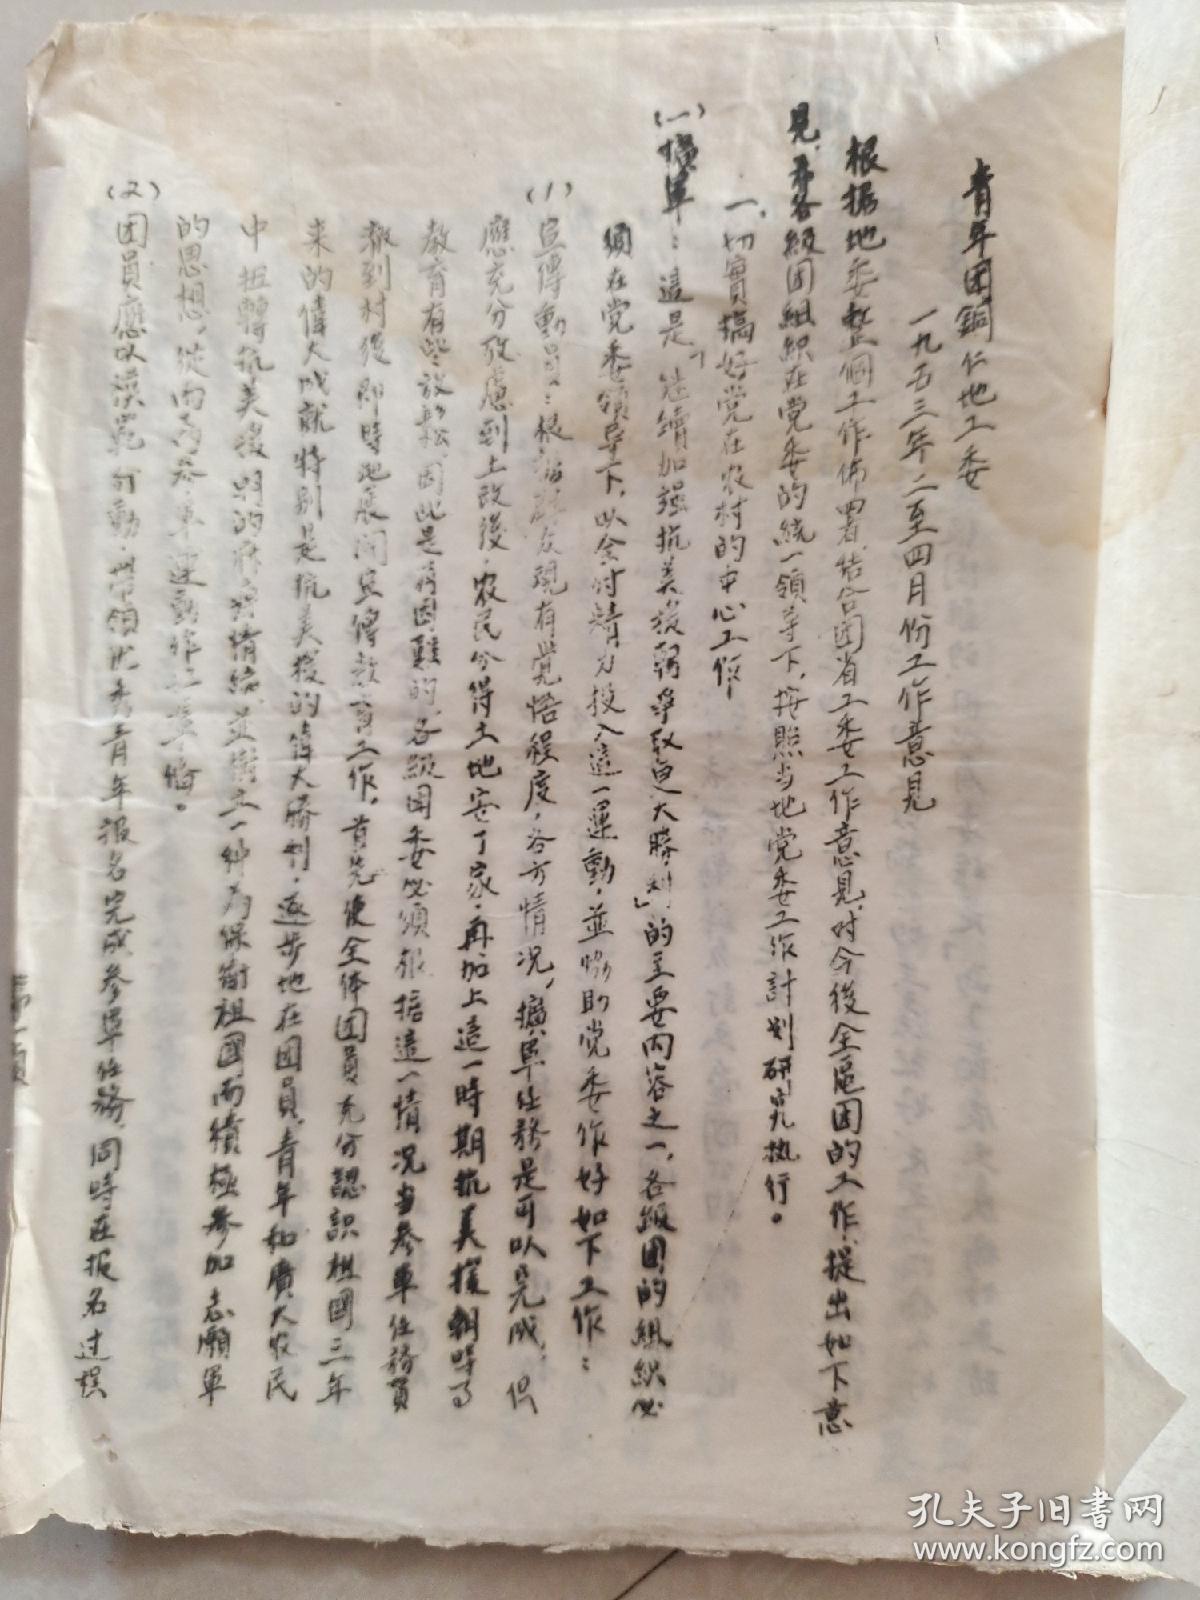 青年团銅仁地工委
一九五三年二至四月份工作意見
根据地委整個工作佈署，结合团省工委工作意見，对今後全區团的工作，提出如下意
見，希各級团組織在党委的統一領导下，按照当地党委工作計划研究执行。
一、切實搞好党在农村的中心工作
(一)擴軍：這是「继續加强抗美援朝爭取更大勝利」的主要内容之一，各級团的組織必
須在党委領导下，以全付精力投入這一運動，並協助党委作好如下工作：
(1)宣傳動員：根据群众現有覺悟程度，各方情况，擴軍任務是可以完成，但
應充分攷慮到土改後，农民分得土地安了家，再加上這一時期抗美援朝時事
教育有些放鬆，因此是有困難的，各級团委必須根据這一情况当参軍任務貫
澈到村後即時地展開宣傳教育工作，首先使全体团員充分認識祖國三年
来的偉大成就特别是抗美援朝的偉大勝利，逐步地在团員、青年和廣大农民
中扭轉抗美援朝的麻痹情緒，並樹立一种为保衛祖國而積極参加志願軍
的思想，从而为参軍運動作
(2)团員應以模範行動，带領优秀青年报名完成参軍任務，同時在报名过程
第一頁
孔夫子旧书网
www.kongfz.com